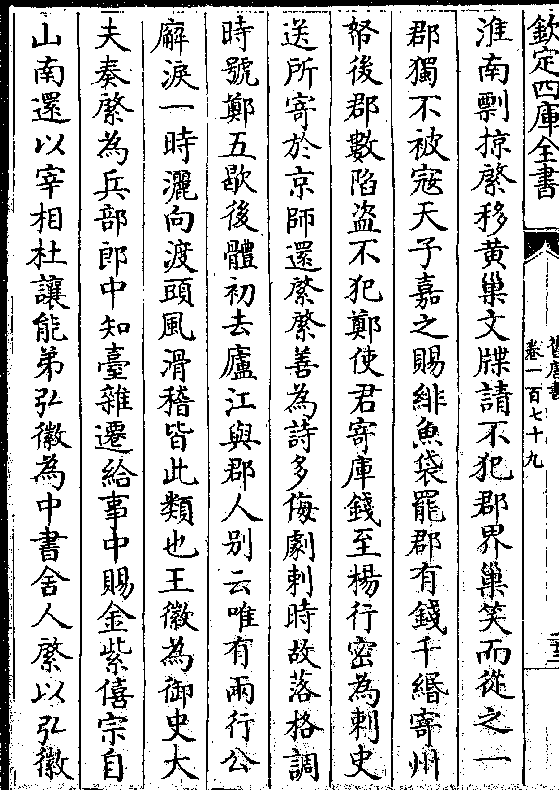 欽定四庫全書
舊唐書
卷一百七十九
淮南剽掠綮移黄巢文牒請不犯郡界巢笑而從之一
郡獨不被寇天子嘉之賜緋魚袋罷郡有錢千緡寄州
帑後郡數陷盗不犯鄭使君寄庫錢至楊行密為刺史
送所寄於京師還綮綮善為詩多侮劇刺時故落格調
時號鄭五歇後體初去廬江與郡人别云唯有兩行公
廨淚一時灑向渡頭風滑稽皆此類也王徽為御史大
夫奏綮為兵部郎中知臺雜遷給事中賜金紫僖宗自
山南還以宰相杜讓能弟弘徽為中書舍人綮以弘徽